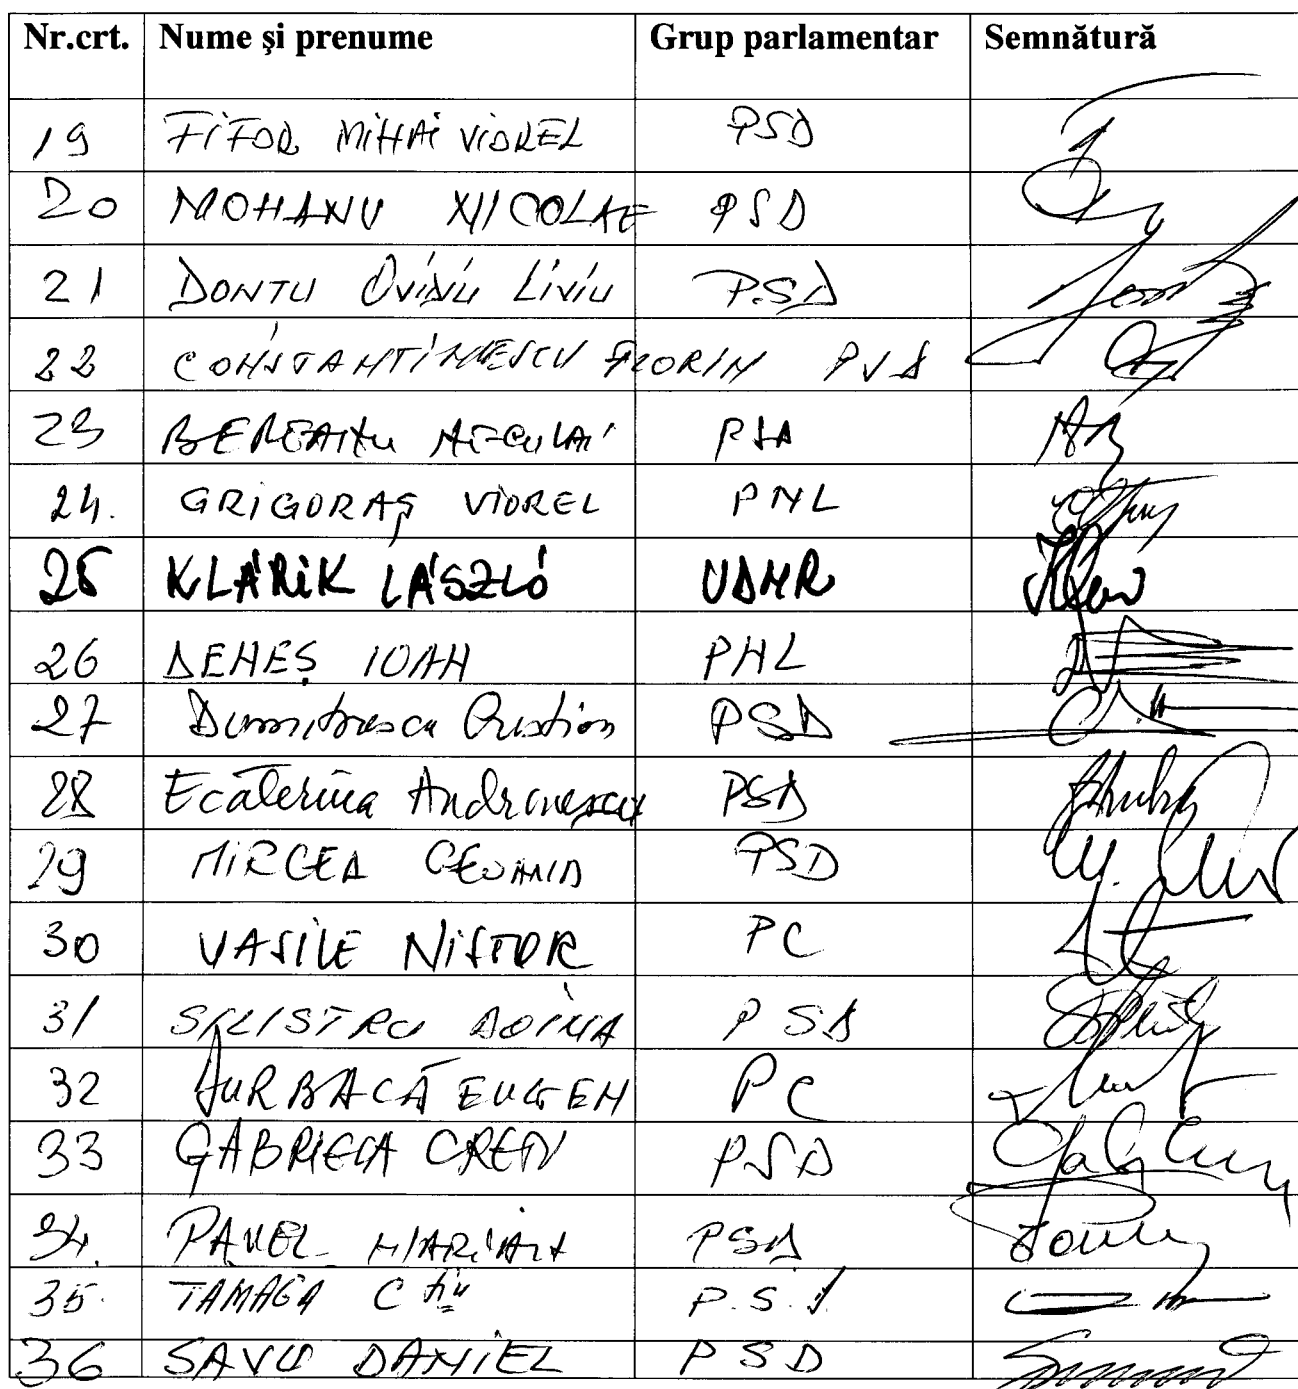 Nr.crt. Nume şi prenume Grup parlamentar Semnătură
19 FIFOR MIHAI VIOREL PSD
20 MOHANU NICOLAE PSD
21 DONTU OVIDIU LIVIU PSD
22 CONSTANTINESCU FLORIN PSD
23 BEREANU NECULAI PSD
24. GRIGORAŞ VIOREL PNL
25 KLÁRIK LÁSZLÓ UDMR
26 DENEŞ IOAN PNL
27 Dumitrescu Cristian PSD
28 Ecaterina Andronescu PSD
29 MIRCEA GEOANĂ PSD
30 VASILE NISTOR PC
31 SILISTRU DOINA PSD
32 DURBACĂ EUGEN PC
33 GABRIELA CREŢU PSD
34. PAVEL MARIAN PSD
35. TĂMAGĂ C tin P.S.D
36 SAVU DANIEL PSD